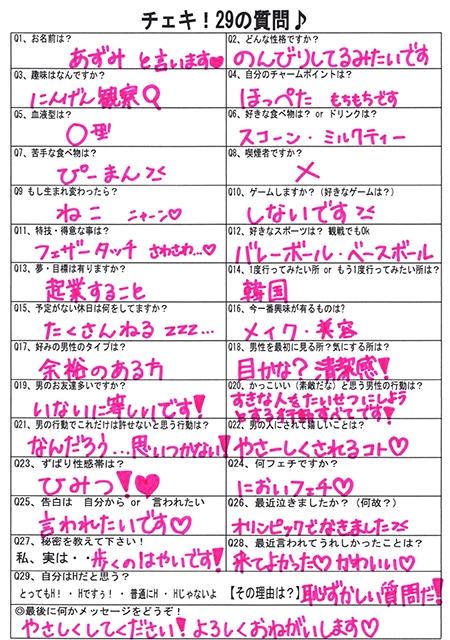 チェキ！29の質問♪
Q1、お名前は？
あずみ と言います♡
Q2、どんな性格ですか？
のんびりしてるみたいです
Q3、趣味はなんですか？
にんげん観察
Q4、自分のチャームポイントは？
ほっぺた もちもちです
Q5、血液型は？
〇型
Q6、好きな食べ物は？ or ドリンクは？
スコーン・ミルクティー
Q7、苦手な食べ物は？
ぴーまん><
Q8、喫煙者ですか？
×
Q9 もし生まれ変わったら？
ねこ ニャーン♡
Q10、ゲームしますか？（好きなゲームは？）
しないです><
Q11、特技・得意な事は？
フェザータッチ さわさわ…♡
Q12、好きなスポーツは？ 観戦でもOk
バレーボール・ベースボール
Q13、夢・目標は有りますか？
起業すること
Q14、1度行ってみたい所 or もう1度行ってみたい所は？
韓国
Q15、予定がない休日は何をしてますか？
たくさんねる zzz…
Q16、今一番興味が有るものは？
メイク・美容
Q17、好みの男性のタイプは？
余裕のある方
Q18、男性を最初に見る所？気にする所は？
目かな？清潔感！
Q19、男のお友達多いですか？
いないに等しいです！
Q20、かっこいい（素敵だな）と思う男性の行動は？
すきな人をたいせつにしよう
とする行動すべてです！
Q21、男の行動でこれだけは許せないと思う行動は？
なんだろう…思いつかない！
Q22、男の人にされて嬉しいことは？
やさーしくされるコト♡
Q23、ずばり性感帯は？
ひみつ！♥
Q24、何フェチですか？
においフェチ♡
Q25、告白は 自分から or 言われたい
言われたいです♡
Q26、最近泣きましたか？（何故？）
オリンピックでなきました><
Q27、秘密を教えて下さい！
私、実は・・歩くのはやいです！
Q28、最近言われてうれしかったことは？
来てよかった♡かわいい♡
Q29、自分はHだと思う？
とってもH！・Hですぅ！・普通にH・Hじゃないよ 【その理由は？】恥ずかしい質問だ！
◎最後に何かメッセージをどうぞ！
やさしくしてください！よろしくおねがいします♡